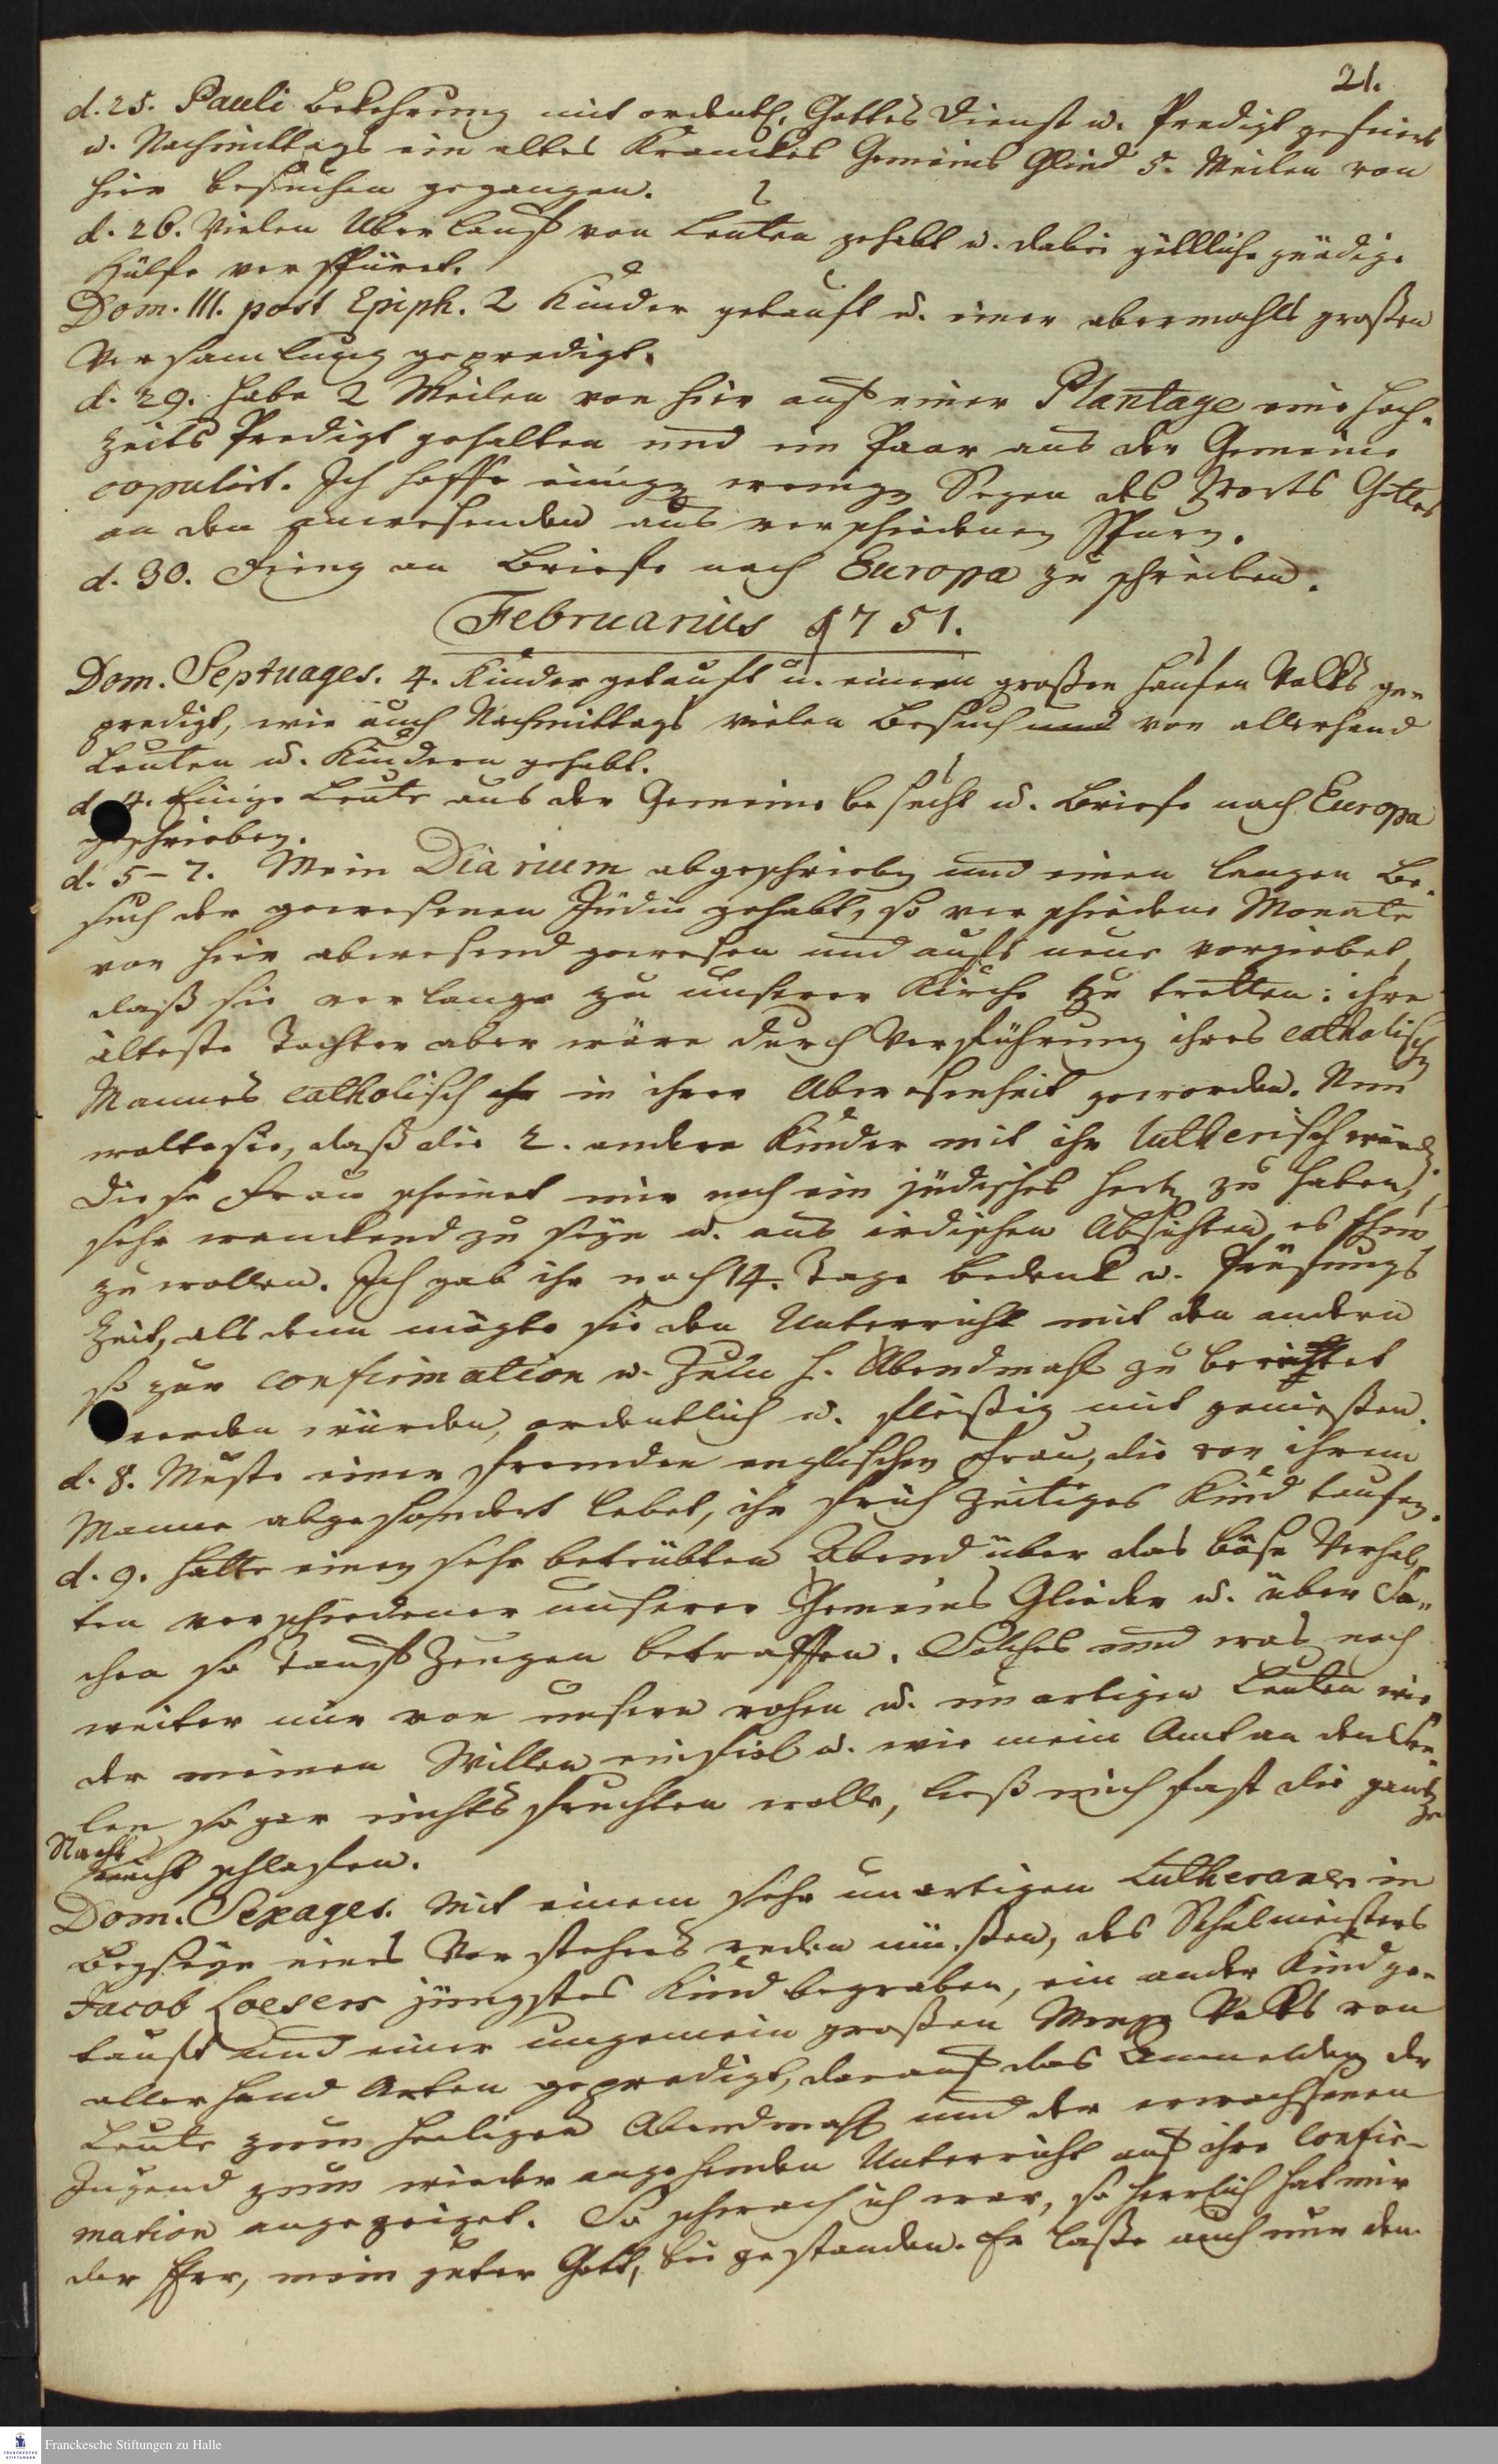 21.
d. 25. Pauli Bekehrung mit ordentl. Gottes Dienst u. Predigt gefeiert
u. Nachmittags ein altes Kranckes Gemeins Glied 5. Meilen von
hier besuchen gegangen.
d. 26. Vielen Uberlauf von Leuten gehabt u. dabei göttliche gnädige
Hülfe verspüret.
Dom. III. post Epiph. 2 Kinder getauft u. einer abermahls großen
Versamlung gepredigt.
d. 29. habe 2 Meilen von hier auf einer Plantage eine Hoch-
zeits Predigt gehalten und ein Paar aus der Gemeine
copulirt. Ich hoffe einigen wenigen Segen des Worts Gottes
an den anwesenden aus verschiedenen Spuren.
d. 30. Fieng an Briefe nach Europa zu schreiben.
Februarius 1751.
Dom. Septuages. 4. Kinder getauft u. einem großen Haufen Volks ge-
predigt, wie auch Nachmittags vielen Besuch und von allerhand
Leuten u. Kindern gehabt.
d. 4. Einige Leute aus der Gemeine besucht u. Briefe nach Europa
geschrieben.
d. 5-7. Mein Diarium abgeschrieben und einen langen Be-
such der gewesenen Jüdin gehabt, so verschiedene Monate
von hier abwesend gewesen und aufs neue vorgiebet,
daß sie verlange zu unserer Kirche zu tretten: ihre
älteste Tochter aber wäre durch Verführung ihres catholischen
Mannes catholisch in ihrer Abwesenheit geworden. Nun
wolte sie, daß die 2. andere Kinder mit ihr lutherisch würden.
Diese Frau scheinet mir noch ein jüdisches Hertz zu haben,
sehr wanckend zu seyn u. aus irdischen Absichten es thun
zu wollen. Ich gab ihr noch 14. Tage Bedenk u. Prüfungs
Zeit, als denn mögte sie den Unterricht mit den andern
so zur confirmation u. Zum H. Abendmahl zu bereitet
werden würden, ordentlich u. fleißig mit genießen.
d. 8. Muste einer fremden englischen Frau, die von ihrem
Manne abgesondert lebet, ihr früh zeitiges Kind taufen.
d. 9. hatte einen sehr betrübten Abend über das böse Verhal-
ten verschiedener unserer Gemeins Glieder u. über Sa-
chen so Tauf Zeugen betraffen. Solches und was noch
weiter mir von unsern rohen u. unartigen Leuten wie-
der meinen Willen einfiel u. wie mein Amt an den See-
len so gar nichts fruchten wolle, ließ mich fast die gantze
Nacht
nicht schlaffen.
Dom. Sexages. Mit einem sehr unartigen Lutheraner in
Beyseyn eines Vorstehers reden müßen, des Schulmeisters
Jacob Loesers jüngstes Kind begraben, ein ander Kind ge-
tauft und einer ungemein großen Menge Volks von
allerhand Arten gepredigt, darauf das Anmelden der
Leute zum heiligen Abendmahl und der erwachsenen
Jugend zum wieder angehenden Unterricht auf ihre Confir-
mation angezeiget. So schwach ich war, so herrlich hat mir
der Herr, mein guter Gott, bei gestanden. Er laße auch nur den
Franckesche Stiftungen zu Halle